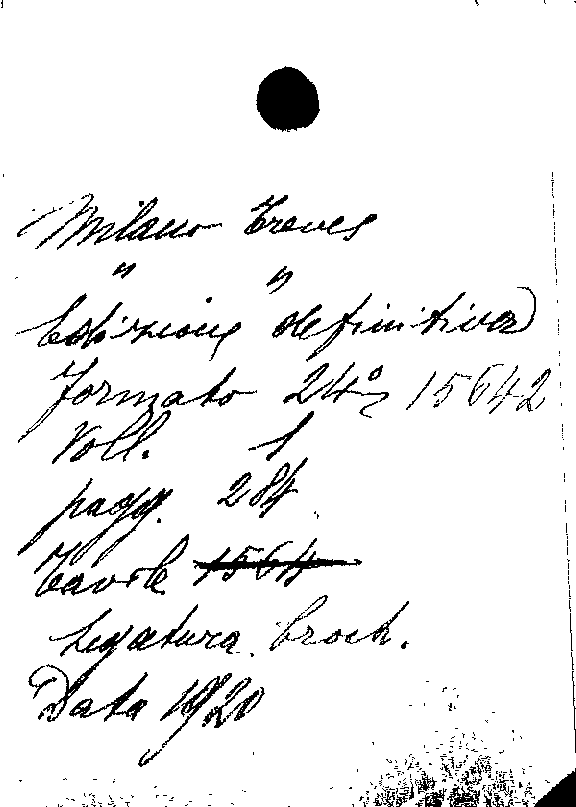 Milano Treves
" "
Edizione definitiva
Formato 24º 15642
Voll. 1
pagg. 284
Tavole 1564
Legatura. broch.
Data 1920